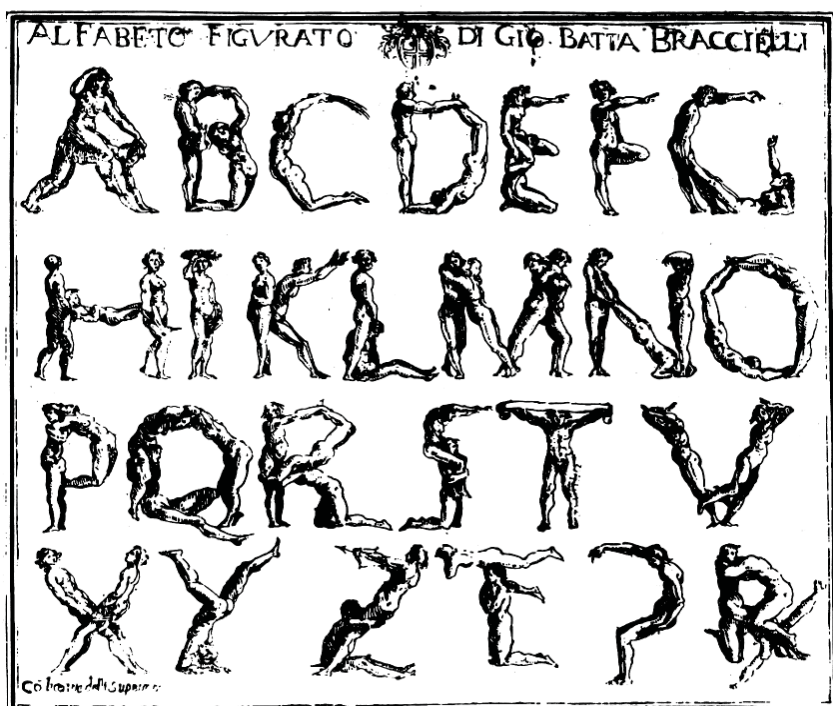 ALFABETO FIGVRATO DI GIO. BATTA BRACCIELLI
A B C D E F G
H I K L M N O
P Q R S T V
X Y Z
Co licenza delli Superiori